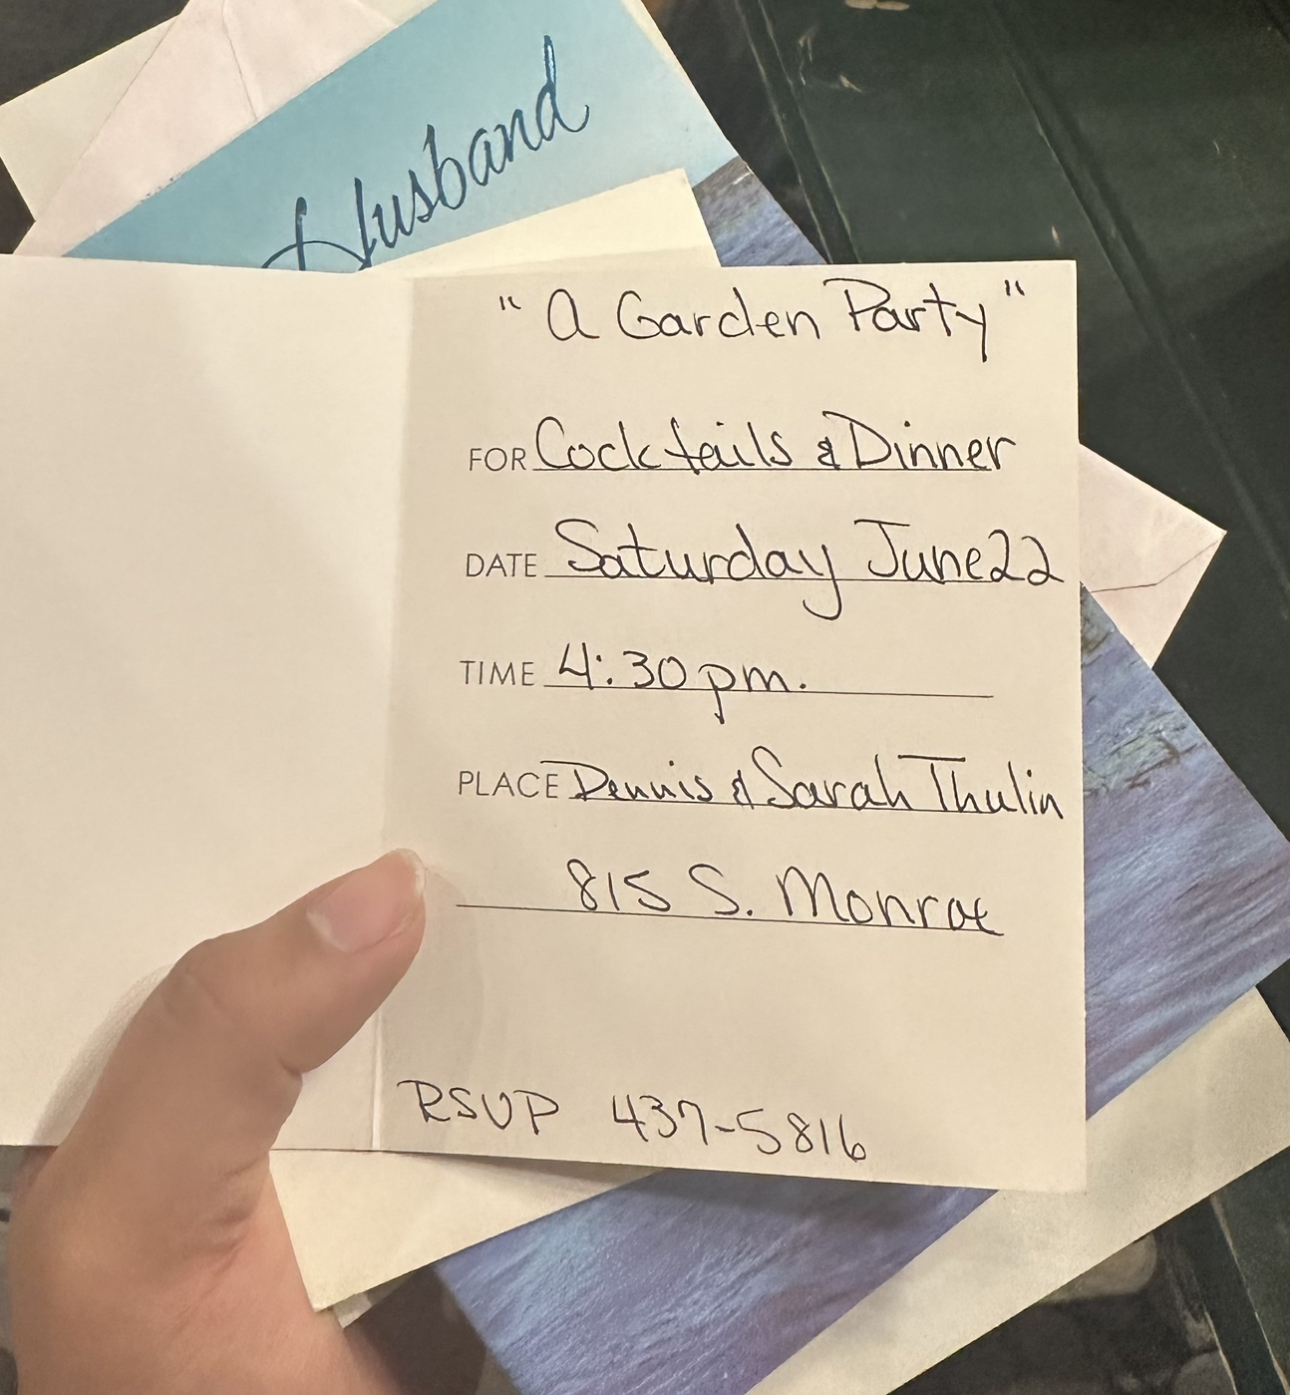 Husband
"A Garden Party"
FOR Cocktails & Dinner
DATE Saturday June 22
TIME 4:30 pm.
PLACE Dennis & Sarah Thulin
815 S. Monroe
RSVP 437-5816